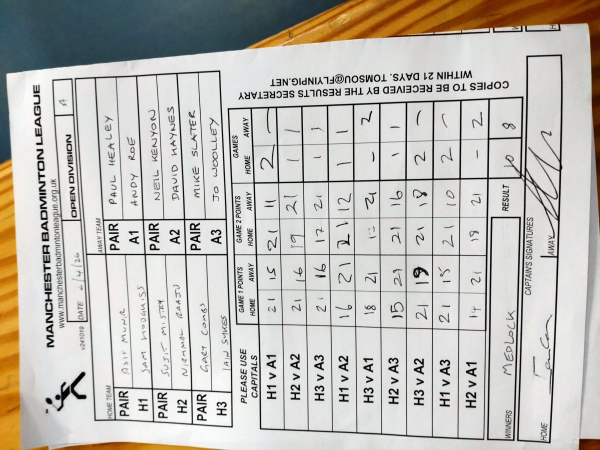 MANCHESTER BADMINTON LEAGUE
www.manchesterbadmintonleague.org.uk
v241019 DATE 6/4/26 OPEN DIVISION A
HOME TEAM AWAY TEAM
PAIR ASIF MUNIR PAIR PAUL HEALEY
H1 SAM A1 ANDY ROE
PAIR SUJIT MISTRY PAIR NEIL KENYON
H2 NIRMMAL RAAJU A2 DAVID HAYNES
PAIR GARY COMBS PAIR MIKE SLATER
H3 IAIN SYKES A3 JO WOOLLEY
PLEASE USE CAPITALS GAME 1 POINTS GAME 2 POINTS GAMES
HOME AWAY HOME AWAY HOME AWAY
H1 v A1 21 15 21 11 2 -
H2 v A2 21 16 19 21 1 1
H3 v A3 21 16 17 21 1 1
H1 v A2 16 21 21 12 1 1
H3 v A1 18 21 21 - 2
H2 v A3 15 21 21 16 1 1
H3 v A2 21 19 21 18 2 -
H1 v A3 21 15 21 10 2 -
H2 v A1 14 21 18 21 - 2
WINNERS MEDLOCK RESULT 10 8
CAPTAIN'S SIGNATURES
HOME AWAY
COPIES TO BE RECEIVED BY THE RESULTS SECRETARY
WITHIN 21 DAYS. TOMSOU@FLYINPIG.NET